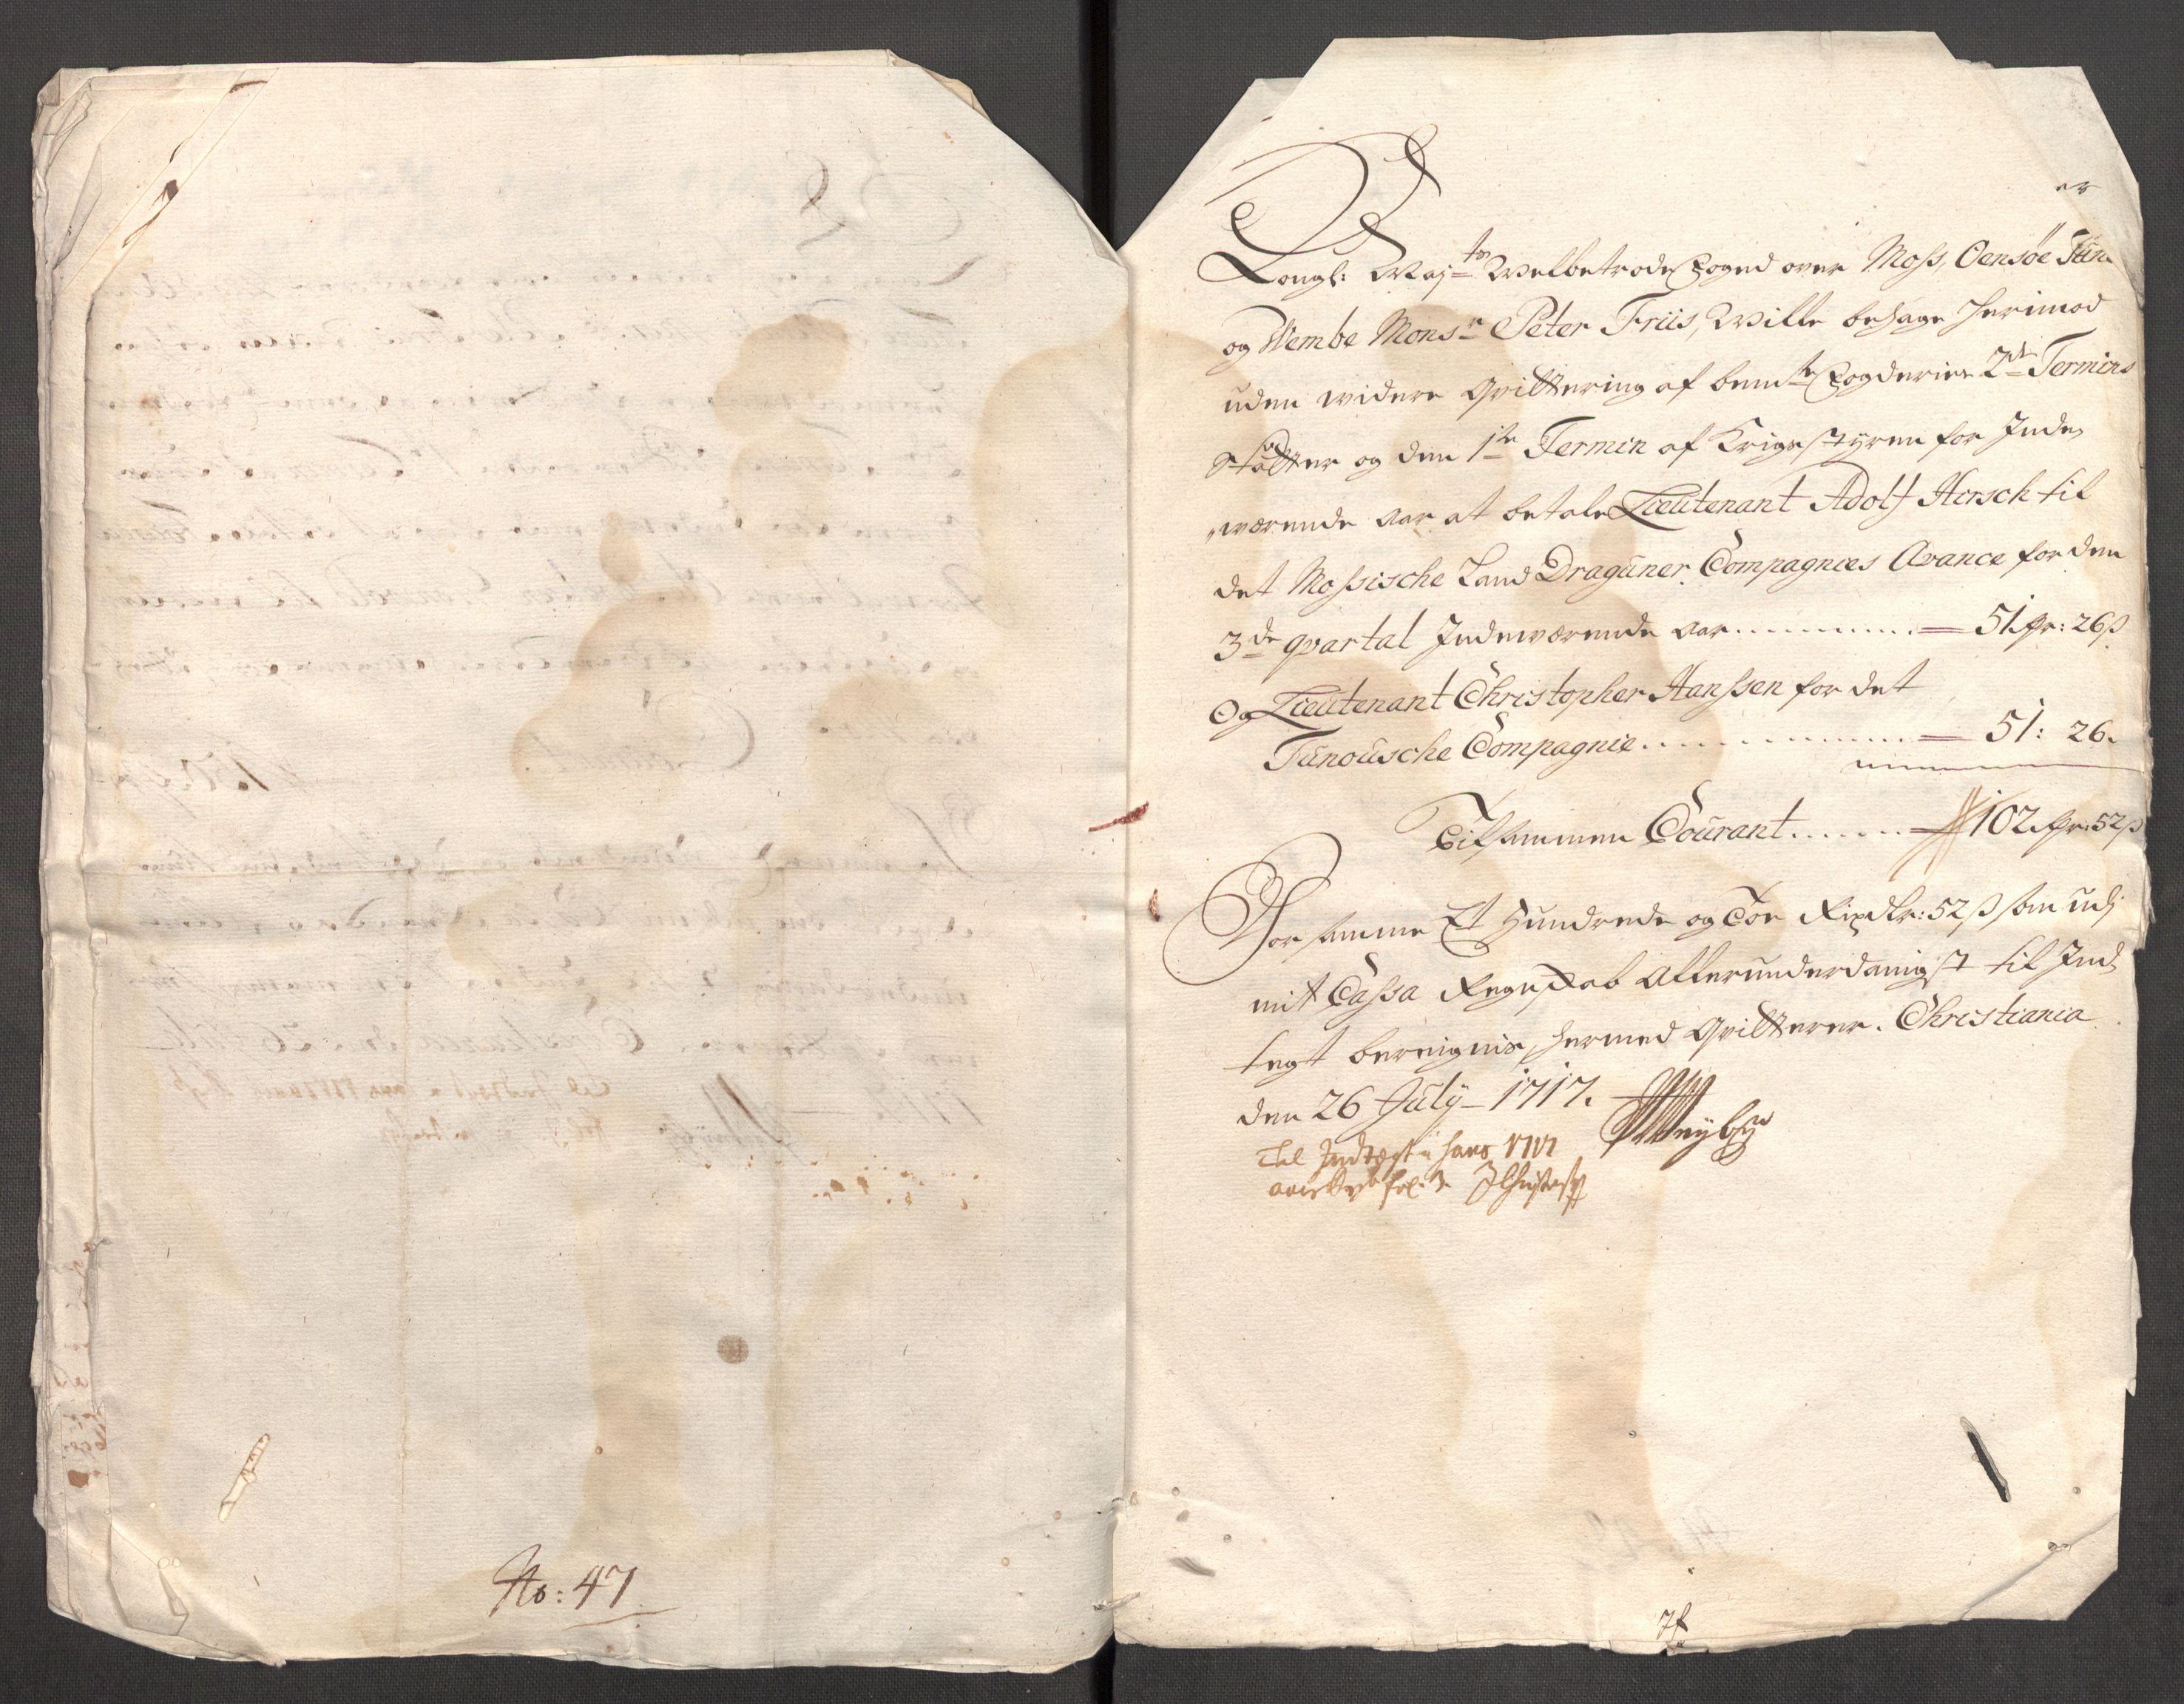 No: 47
Kongl: Maj:ts Welbetrode Foged over Moss, Oensøe Tün
og Wembe Monsr Peter Friis, Wille behage herimod
uden widere Qvittering af bemte Fogderies 2de Termins
Skatter og den 1te Termin af Krigsstyren for Inde
værende Aar at betale Lieutenant Adolf Hirsch til
det Mossische Land Dragüner Compagnies Avance for den
3de qvartal Indeværende Aar.......... 51 Rdr: 26 ß
Og Lieutenant Christopher Hanssen for det
Tünoüsche Compagnie.......... 51: 26.
Tilsammen Coürant...... 102 Rdr: 52 ß
For samme Et Hundrede og Toe Rixdlr: 52 ß som udj
mit Cassa Regnskab Allerunderdanigst til Ind
tegt bereignis, hermed Qvitterer. Christiania
den 26 July 1717.
Til Indtægt i hans 1717
fol: 3.